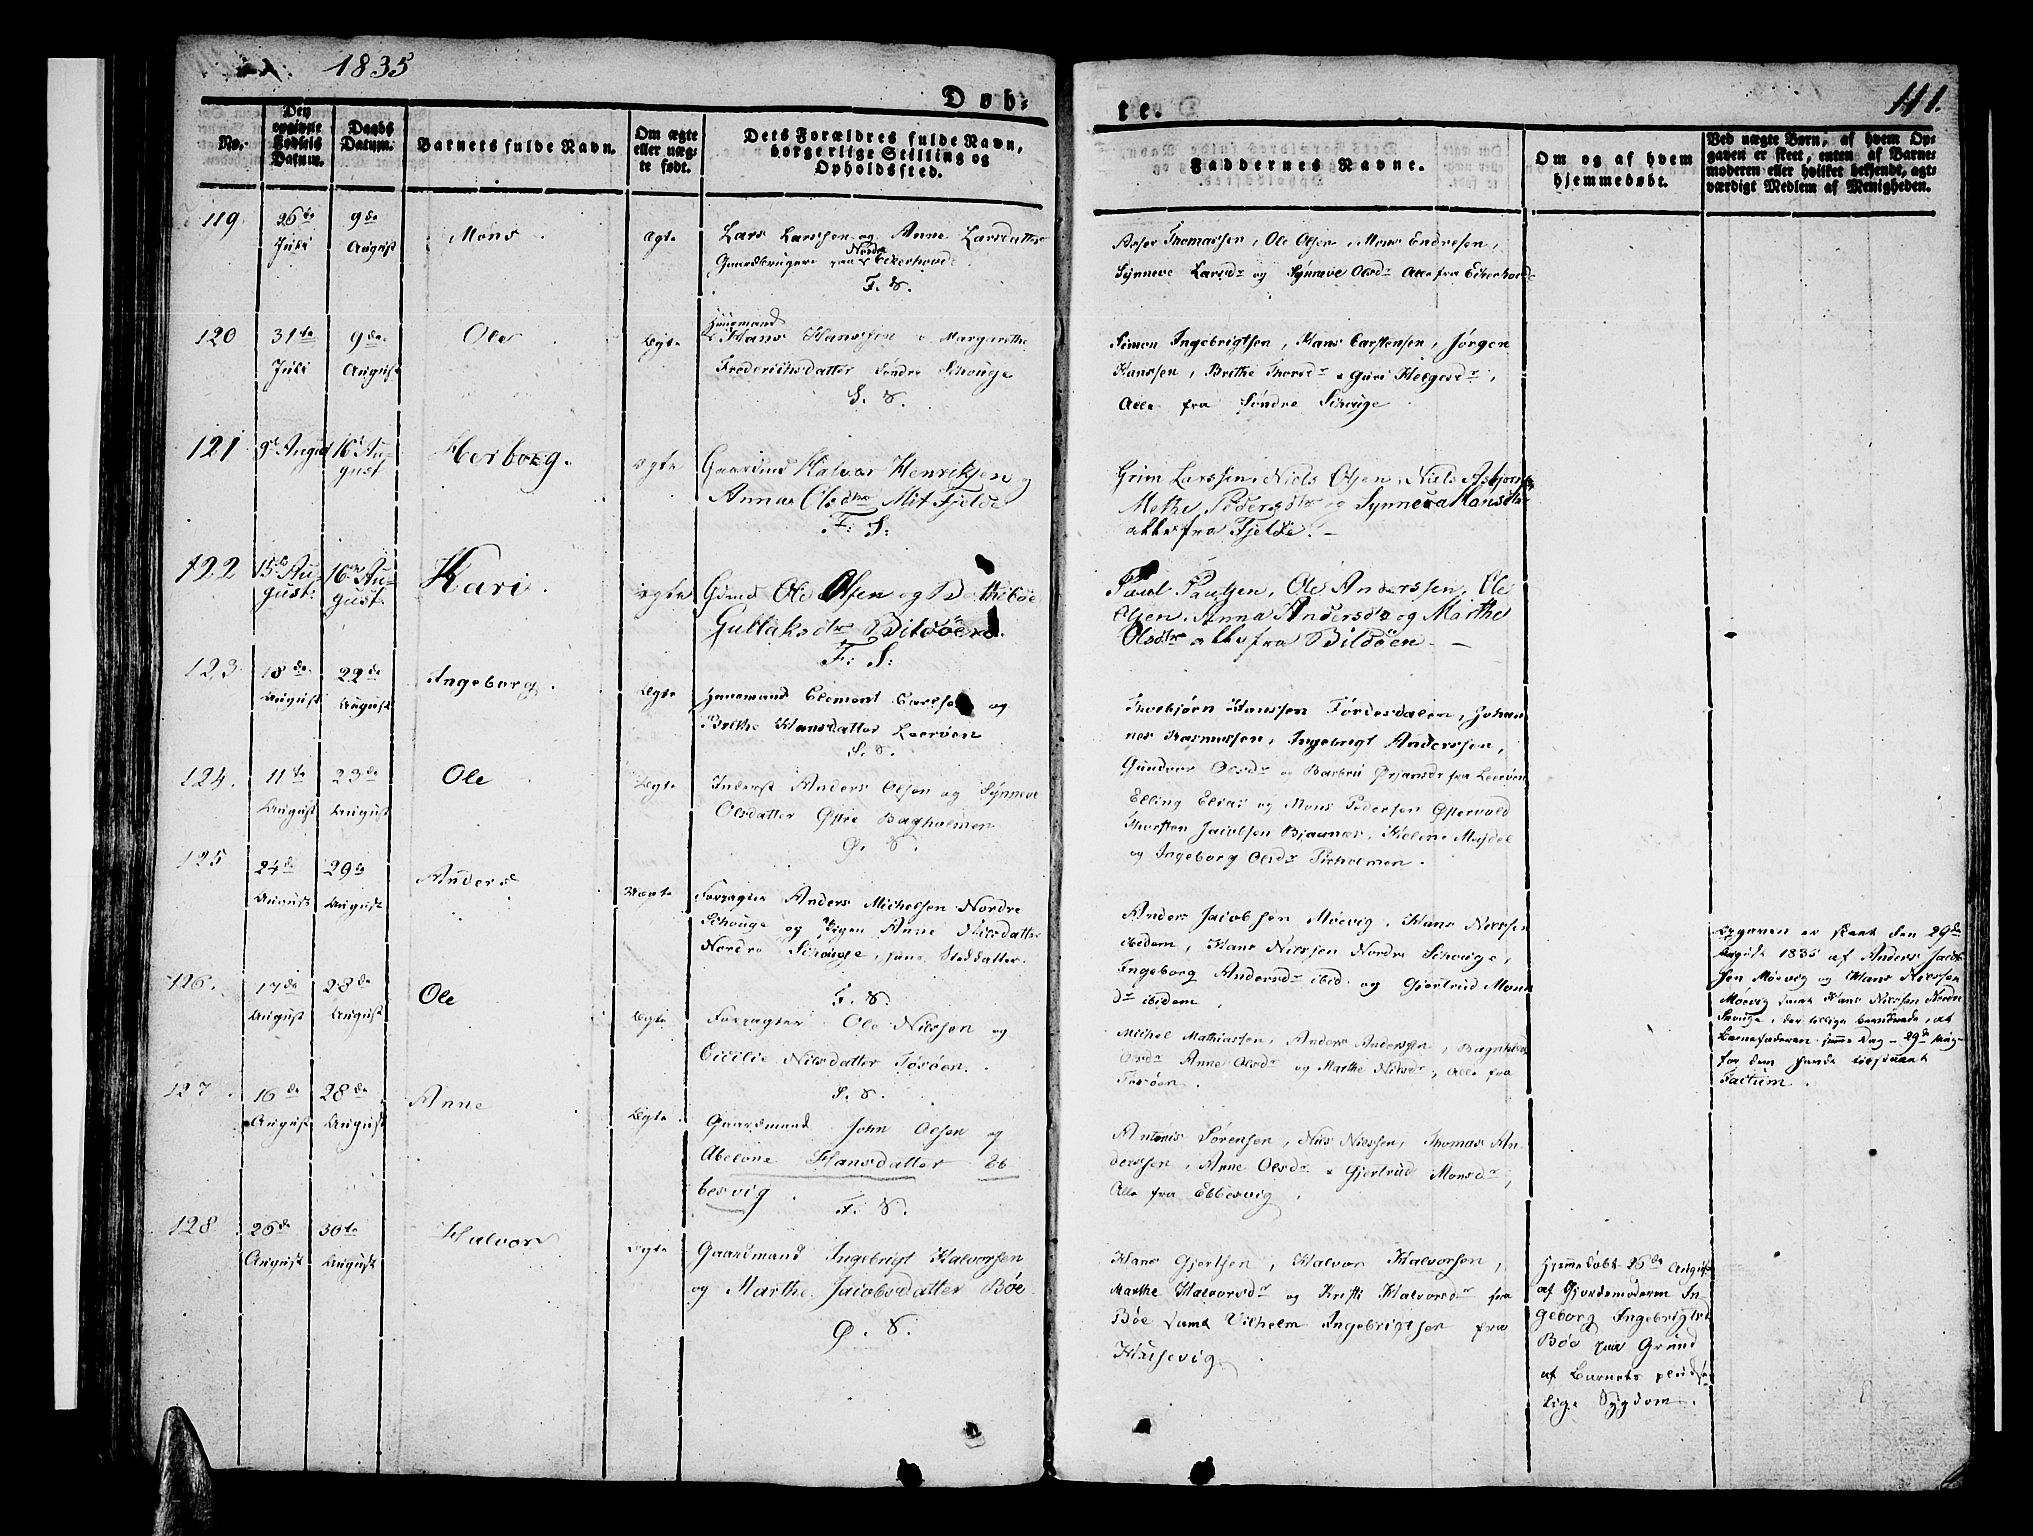 1835
Døb-
te.
111.
No.
Den opgivne Fødsels Datum.
Daabs Datum.
Barnets fulde Navn.
Om ægte eller uæg-
te født.
Dets Forældres fulde Navn,
borgerlige Stilling og
Opholdssted.
Faddernes Navne.
Om og af hvem
hjemmedøbt.
Ved uægte Børn, af hvem Op-
gaven er skeet, enten af Barne-
moderen eller hvilket bekjendt, agt-
værdigt Medlem af Menigheden.
119. 26de Juli 9de August Mons Ægte
Lars Larssen og Anne Larsdatter
Gaardbrugere paa Nordre Eckerhovde
F. S.
Aser Thomassen, Ole Olsen, Mons Endresen,
Synneve Larsdr og Synneve Olsdr Alle fra Eckerhovde
120 31te Juli 9de August Ole Ægte
Huusmand
Hans Hanssen & Margarethe
Frederichsdatter Søndre Schouge
S. S.
Simon Ingebrigtsen, Hans Carstensen, Jørgen
Hanssen, Brithe Thorsdr & Guri Helgesdr,
Alle fra Søndre Schouge
121 9de August 16de Au-
gust Herborg. ægte
Gaardmd Halvor Henriksen og
Anna Olsdtr Mit Fjelde
F: S:
Grim Larssen, Niels Olsen, Niels Asbjørns
Methe Pedersdtr og Synneva Hansdtr
alle fra Fjelde. -
122 15de Au-
gust. 16de Au-
gust. Kari. ægte
Gdmd Ole Olsen og Brithe
Gullaksdtr Bildøen.
F: S:
Povl Paulsen, Ole Anderssen, Ole
Olsen, Anna Andersdtr og Marthe
Olsdtr alle fra Bildøen. -
123. 18de August 22de August Ingeborg. Ægte
Huusmand Clement Carlsen og
Brithe Hansdatter Leerøen
S. S.
Thorbjørn Hanssen Førdesdalen, Johan-
nes Rasmussen, Ingebrigt Anderssen,
Gundvor Olsdr og Barbru Ørjansdr fra Leerøen
124. 11te August 23de August Ole Ægte
Inderst Anders Olsen og Synneve
Olsdatter Østre Bagholmen
Ø. S.
Elling Elias og Mons Pedersen Østervold
Thorsten Jacobsen Bjaanæs,
og Ingeborg Olsdr
125 24de August 29de August Anders Uægte
Anders Michelsen Nordre
Schouge og Pigen Anne Nilsdatter
Nordre Schouge, hans Steddatter.
F. S.
Anders Jacobsen Møvig, Hans Nilssen
ibidem, Hans Nilssen Nordre Schouge,
Ingeborg Andersdr ibid. og Gjertrud Mons
dr ibidem.
Opgaven er skeet den 29de
August 1835 af Anders Jacob-
sen Møvig og Hans Nilssen
Møvig samt Hans Nilssen Nordre
Skouge, der tillige bevidnede, at
Barnefaderen samme Dag - 29de Aug -
for dem havde tilstaaet
Factum.
126. 17de August 28de August Ole Ægte
Ole Nilssen og
Cicilie Nilsdatter Tøsøen.
S. S.
Michel Mathiassen, Anders Anderssen,
Olsdr Anne Olsdr og Marthe Nilsdr, Alle fra
Tøsøen.
127. 16de August 28de August Anne Ægte
Gaardmand John Olsen og
Abelone Hansdatter Eb-
besvig.
F. S.
Antonis Sørensen, Nils Nilssen, Thomas An-
derssen, Anne Olsdr & Gjertrud Monsdr,
Alle fra Ebbesvig.
128. 26de August 30te August Halvor Ægte
Gaardmand Ingebrigt Halvorsen
og Marthe Jacobsdatter Bøe
Ø. S.
Hans Gjertsen, Halvor Halvorsen,
Marthe Halvorsdr og Kristi Halvorsdr fra
Bøe samt Vilhelm Ingebrigtsen fra
Hjemmedøbt 26de August
af Gjordemoderen In-
geborg Ingebrigtsd
Bøe paa Grund
af Barnets pludse-
lige Sygdom.